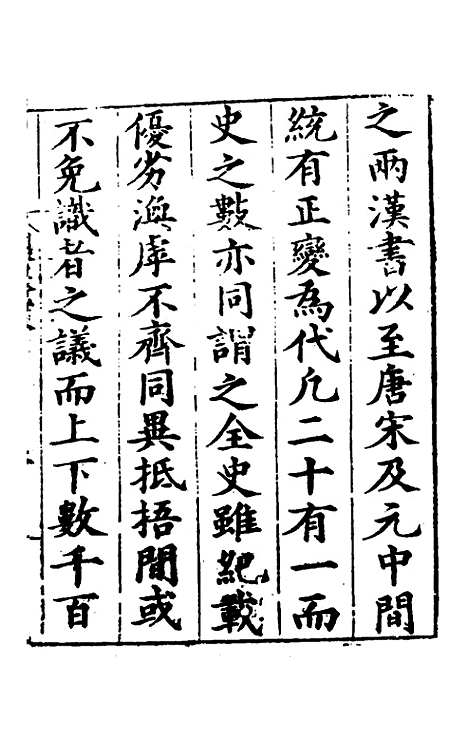 之兩漢書以至唐宋及元中間
統有正變為代凡二十有一而
史之數亦同謂之全史雖紀載
優劣漁庫不齊同異抵捂間或
不免識者之議而上下數千百